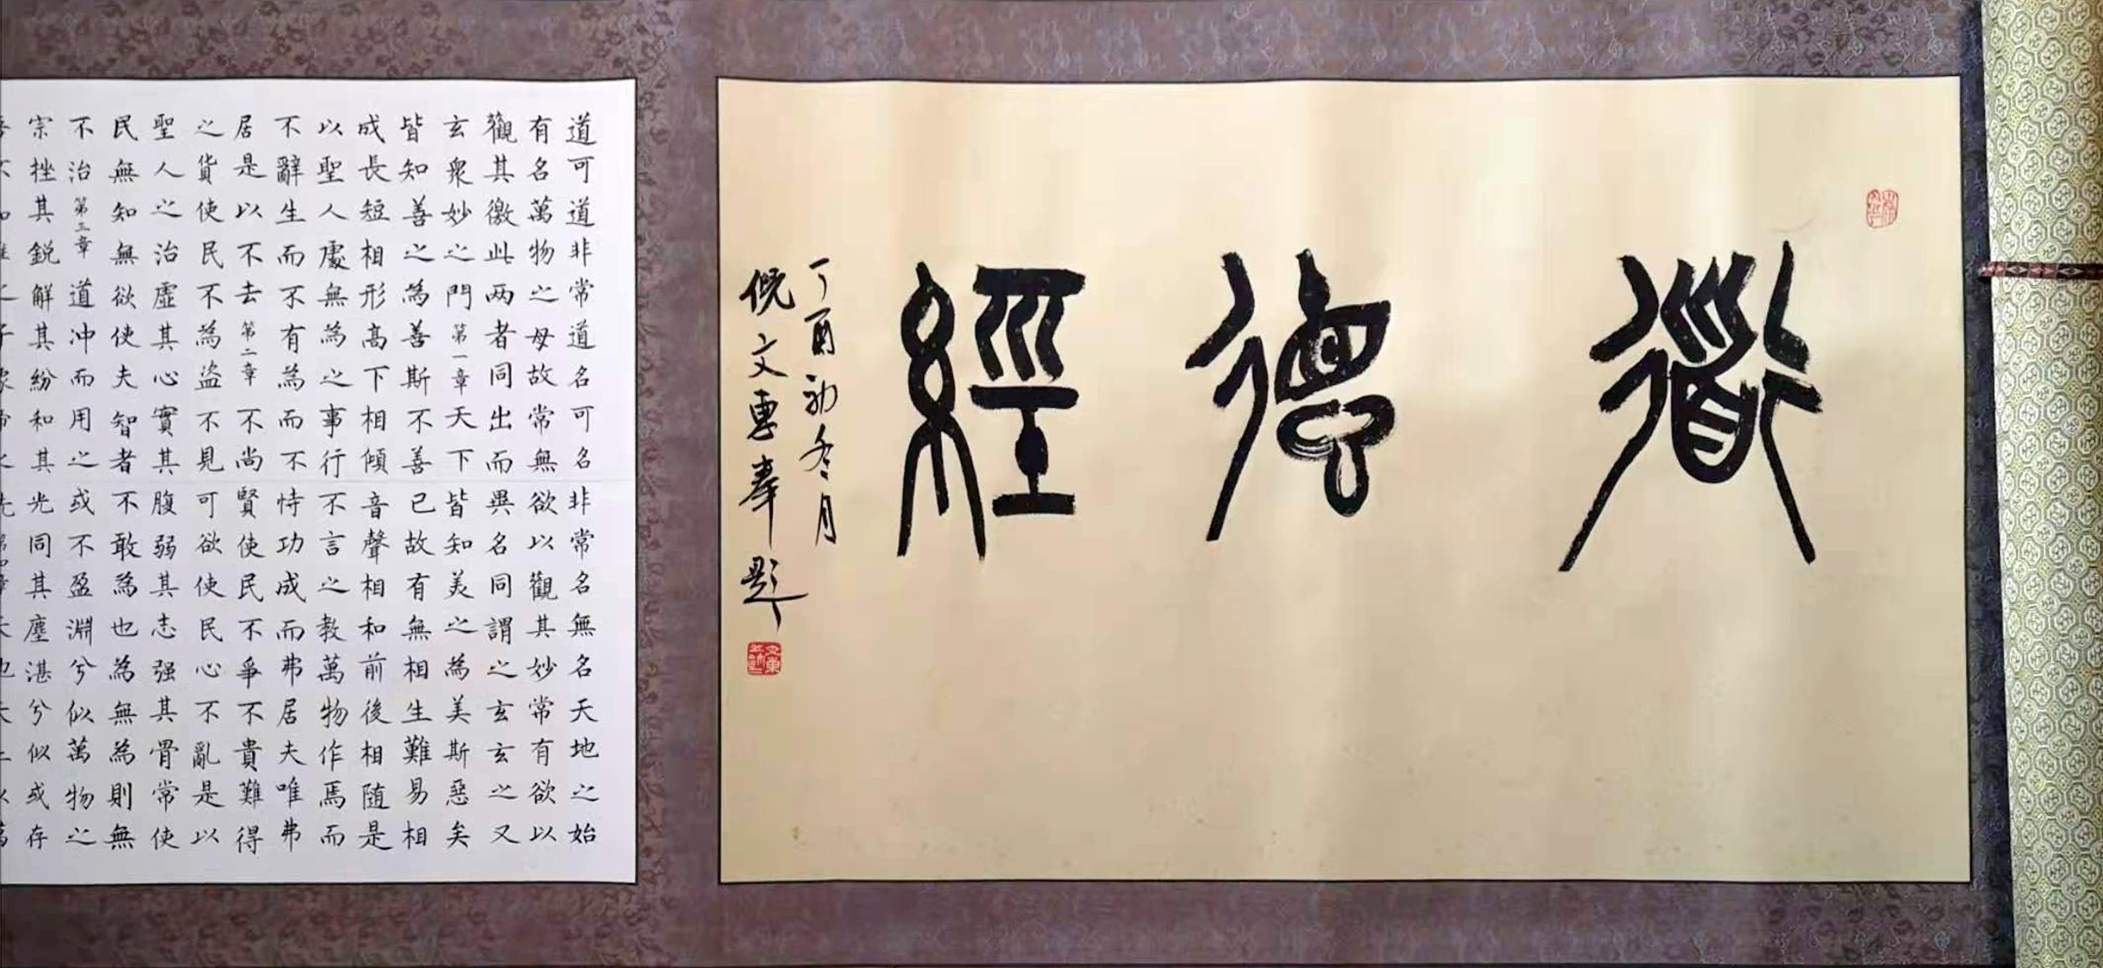 道德經
丁酉初冬月
倪文東奉題
道可道非常道名可名非常名無名天地之始
有名萬物之母故常無欲以觀其妙常有欲以
觀其徼此两者同出而異名同謂之玄玄之又
玄衆妙之門第一章天下皆知美之為美斯惡矣
皆知善之為善斯不善已故有無相生難易相
成長短相形高下相傾音聲相和前後相随是
以聖人處無為之事行不言之教萬物作焉而
不辭生而不有為而不恃功成而弗居夫唯弗
居是以不去第二章不尚賢使民不爭不貴難得
之貨使民不為盗不見可欲使民心不亂是以
聖人之治虛其心實其腹弱其志强其骨常使
民無知無欲使夫智者不敢為也為無為則無
不治第三章道冲而用之或不盈淵兮似萬物之
宗挫其鋭解其紛和其光同其塵湛兮似或存